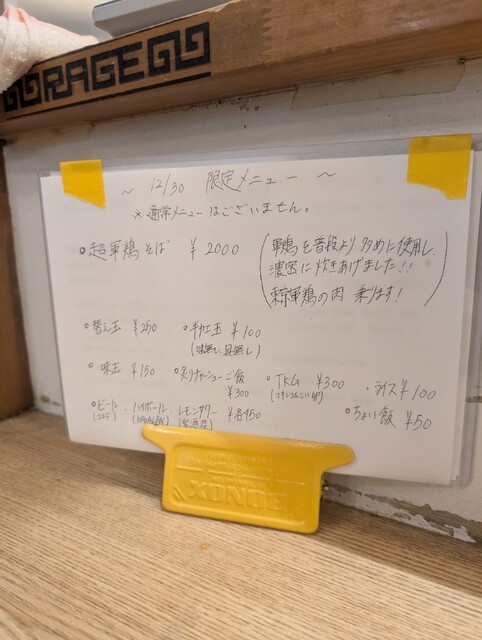 RAGE
〜 12/30 限定メニュー 〜
※通常メニューはございません。
超軍鶏そば ¥2000
(軍鶏を普段より多めに使用し、
濃密に炊きあげました!!
東京軍鶏の肉 乗ります!)
替え玉 ¥250
・和え玉 ¥100
(味無し、具無し)
味玉 ¥150
・炙りチャーシューご飯
¥300
・TKG ¥300
・ライス ¥100
・ビール・ハイボール レモンサワー ¥各450
・ちょい飯 ¥50
BONOX